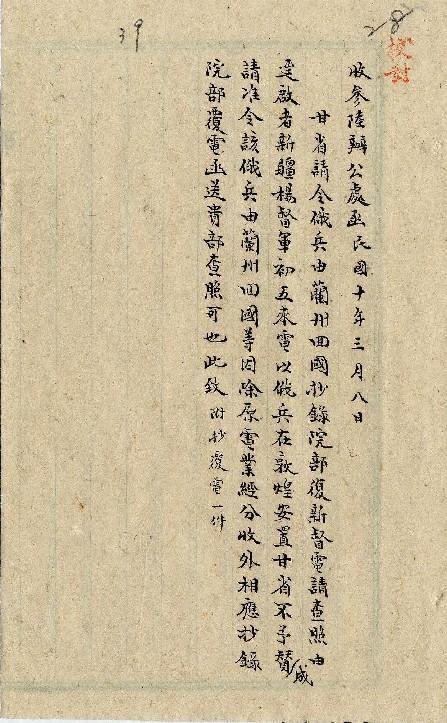 28
39
校對
收參陸辦公處函民國十年三月八日
甘省請令俄兵由蘭州回國抄錄院部復新督電請查照由
逕啟者新疆楊督軍初五來電以俄兵在敦煌安置甘省不予贊成
請准令該俄兵由蘭州回國等因除原電業經分收外相應抄錄
院部覆電函送貴部查照可也此致附抄覆電一件